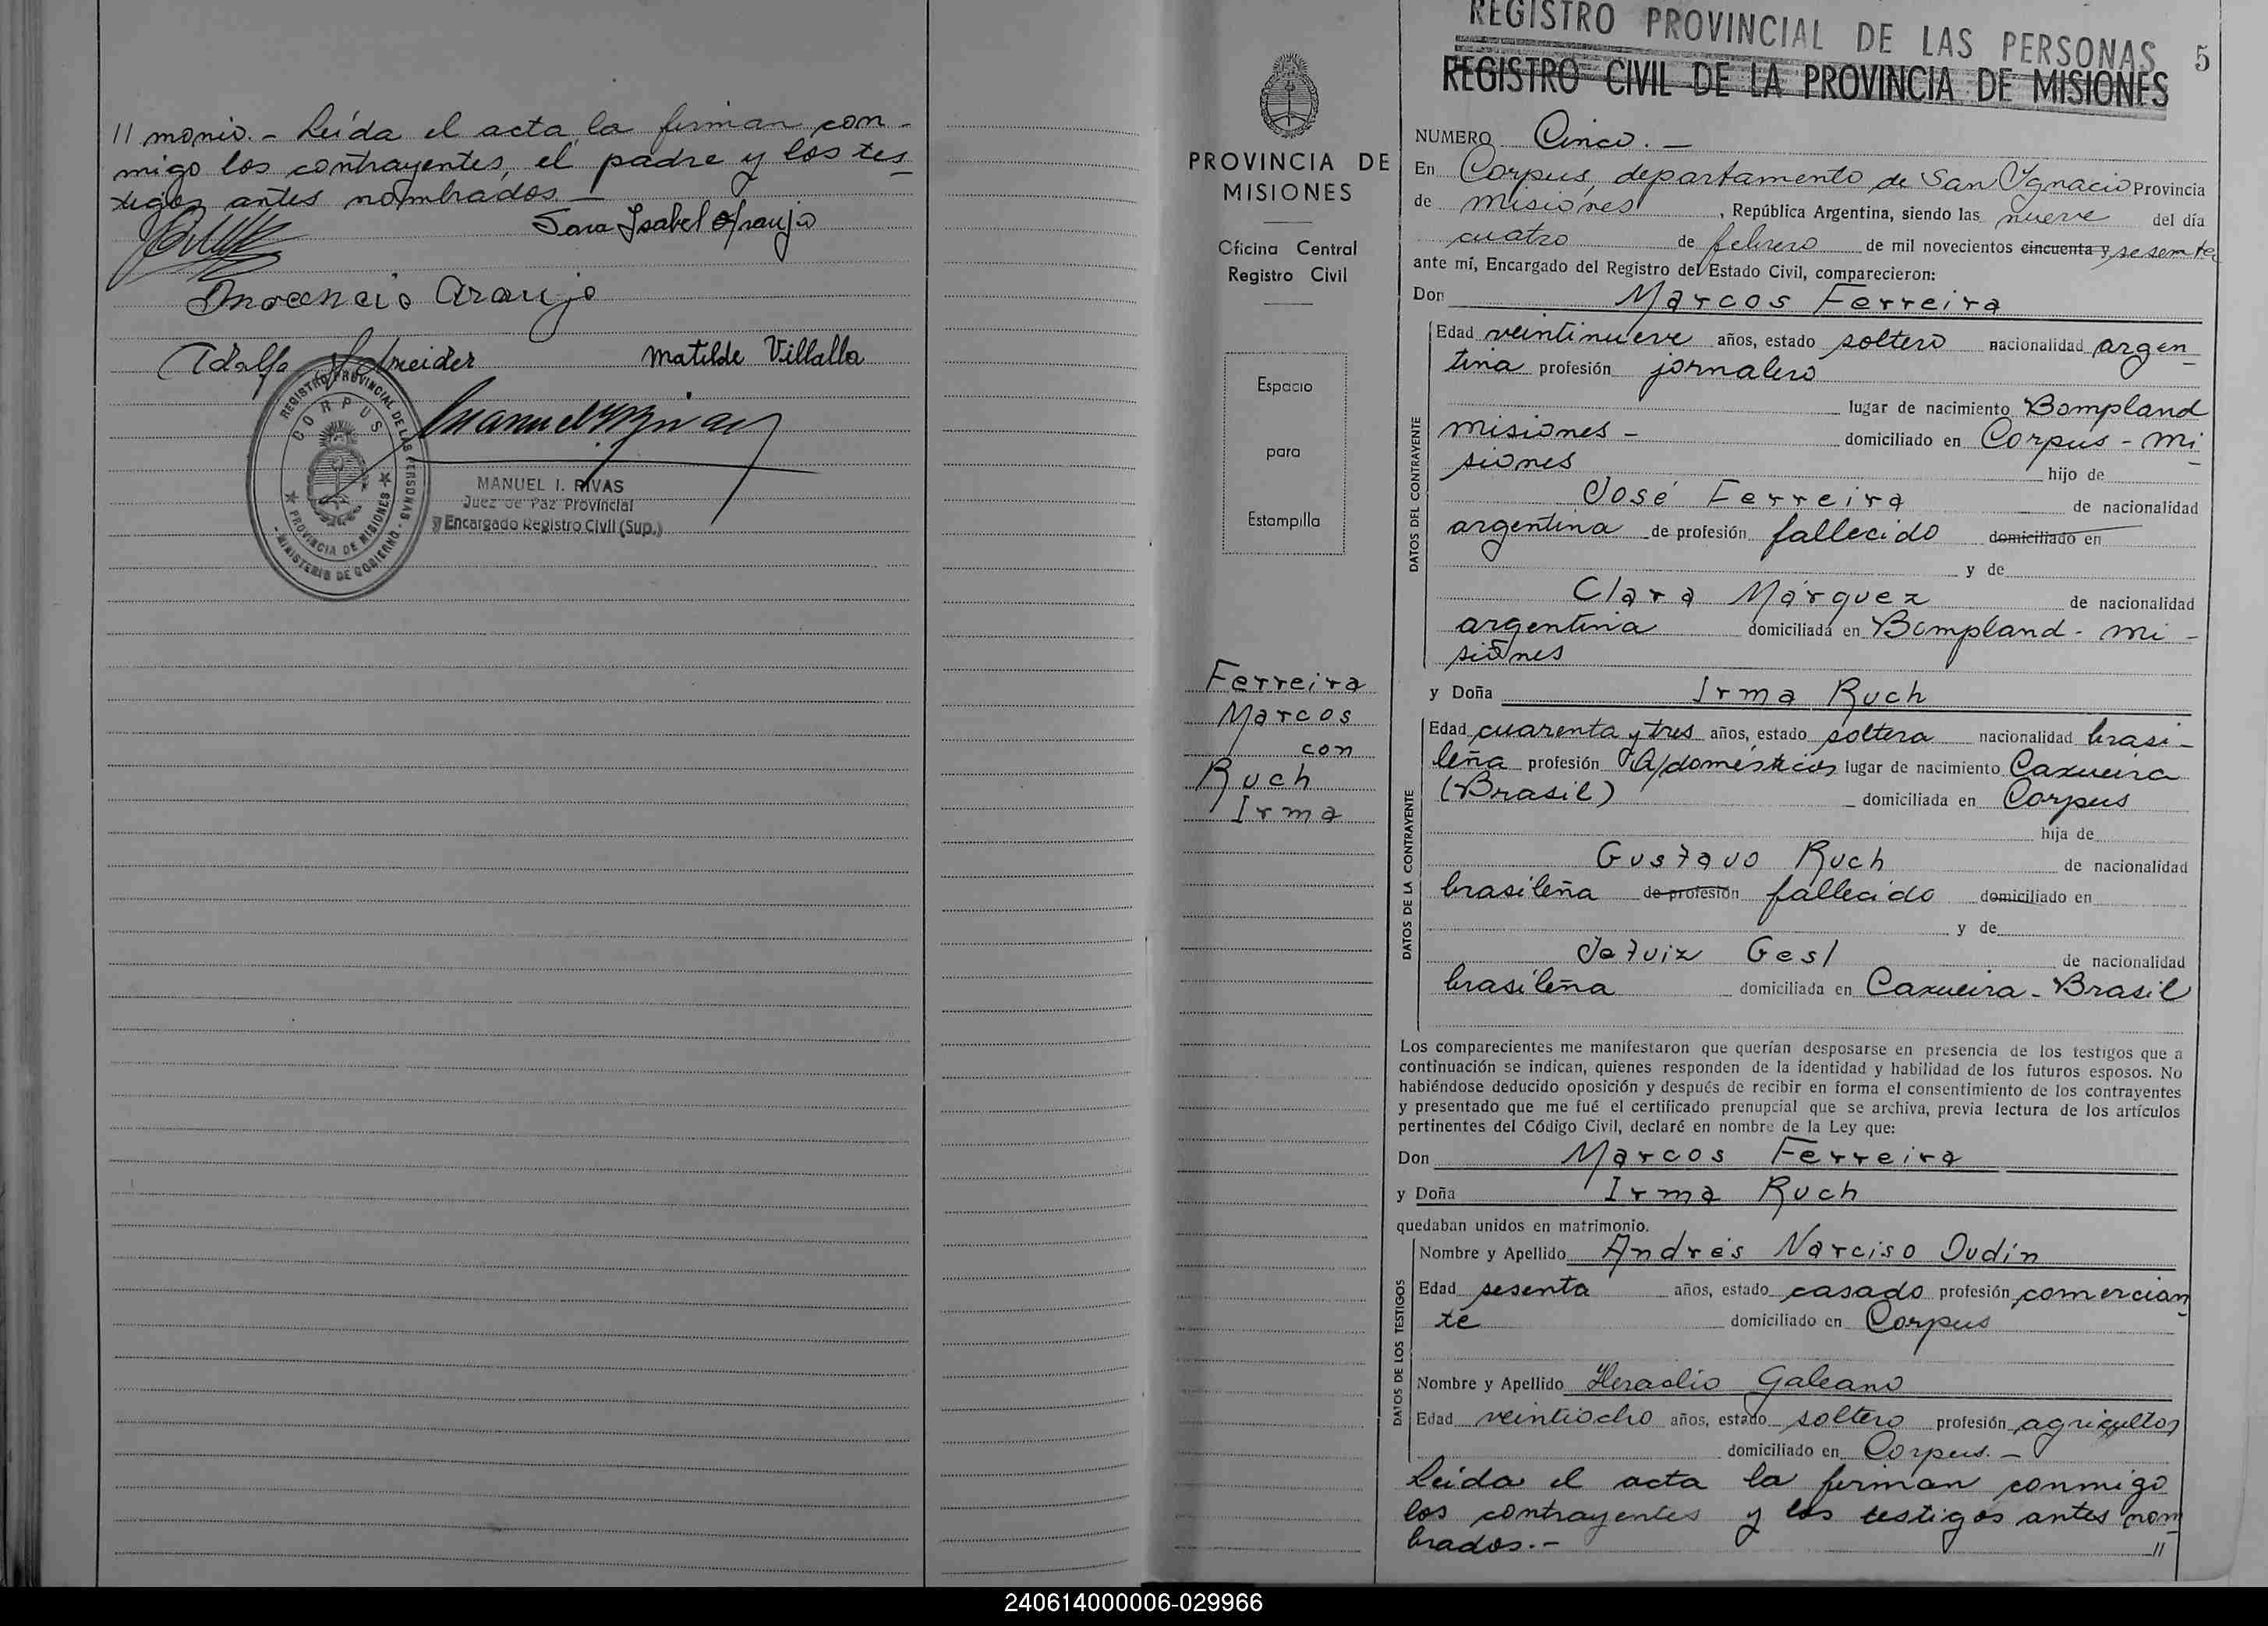 // monio. - Leída el acta la firman con-
migo los contrayentes, el padre y los tes-
tigos antes nombrados. -
Sara Isabel Araujo
Inocencio Araujo
Adolfo Schneider Matilde Villalba
REGISTRO PROVINCIAL DE LAS PERSONAS - MINISTERIO DE GOBIERNO -
CORPUS
★ PROVINCIA DE MISIONES ★
MANUEL I. RIVAS
Juez de Paz Provincial
y Encargado Registro Civil (Sup.)
PROVINCIA DE
MISIONES
Oficina Central
Registro Civil
Espacio
para
Estampilla
Ferreira
Marcos
con
Ruch
Irma
REGISTRO PROVINCIAL DE LAS PERSONAS 5
REGISTRO CIVIL DE LA PROVINCIA DE MISIONES
NUMERO Cinco. -
En Corpus, departamento de San Ygnacio Provincia
de Misiones, República Argentina, siendo las nueve del día
cuatro de febrero de mil novecientos cincuenta y sesenta
ante mí, Encargado del Registro del Estado Civil, comparecieron:
Don Marcos Ferreira
DATOS DEL CONTRAYENTE
Edad veintinueve años, estado soltero nacionalidad argen-
tina profesión jornalero
lugar de nacimiento Bompland
misiones - domiciliado en Corpus - mi-
siones hijo de
José Ferreira de nacionalidad
argentina de profesión fallecido domiciliado en
y de
Clara Márquez de nacionalidad
argentina domiciliada en Bompland - mi-
siones
y Doña Irma Ruch
DATOS DE LA CONTRAYENTE
Edad cuarenta y tres años, estado soltera nacionalidad brasi-
leña profesión Q/domésticos lugar de nacimiento Caxueira
(Brasil) domiciliada en Corpus
hija de
Gustavo Ruch de nacionalidad
brasileña de profesión fallecido domiciliado en
y de
Jatuiz Gesl de nacionalidad
brasileña domiciliada en Caxueira - Brasil
Los comparecientes me manifestaron que querían desposarse en presencia de los testigos que a
continuación se indican, quienes responden de la identidad y habilidad de los futuros esposos. No
habiéndose deducido oposición y después de recibir en forma el consentimiento de los contrayentes
y presentado que me fué el certificado prenupcial que se archiva, previa lectura de los artículos
pertinentes del Código Civil, declaré en nombre de la Ley que:
Don Marcos Ferreira
y Doña Irma Ruch
quedaban unidos en matrimonio.
DATOS DE LOS TESTIGOS
Nombre y Apellido Andrés Narciso Dudín
Edad sesenta años, estado casado profesión comercian-
te domiciliado en Corpus
Nombre y Apellido Heraclio Galeano
Edad veintiocho años, estado soltero profesión agricultor
domiciliado en Corpus. -
Leída el acta la firman conmigo
los contrayentes y los testigos antes nom-
brados. - //
240614000006-029966